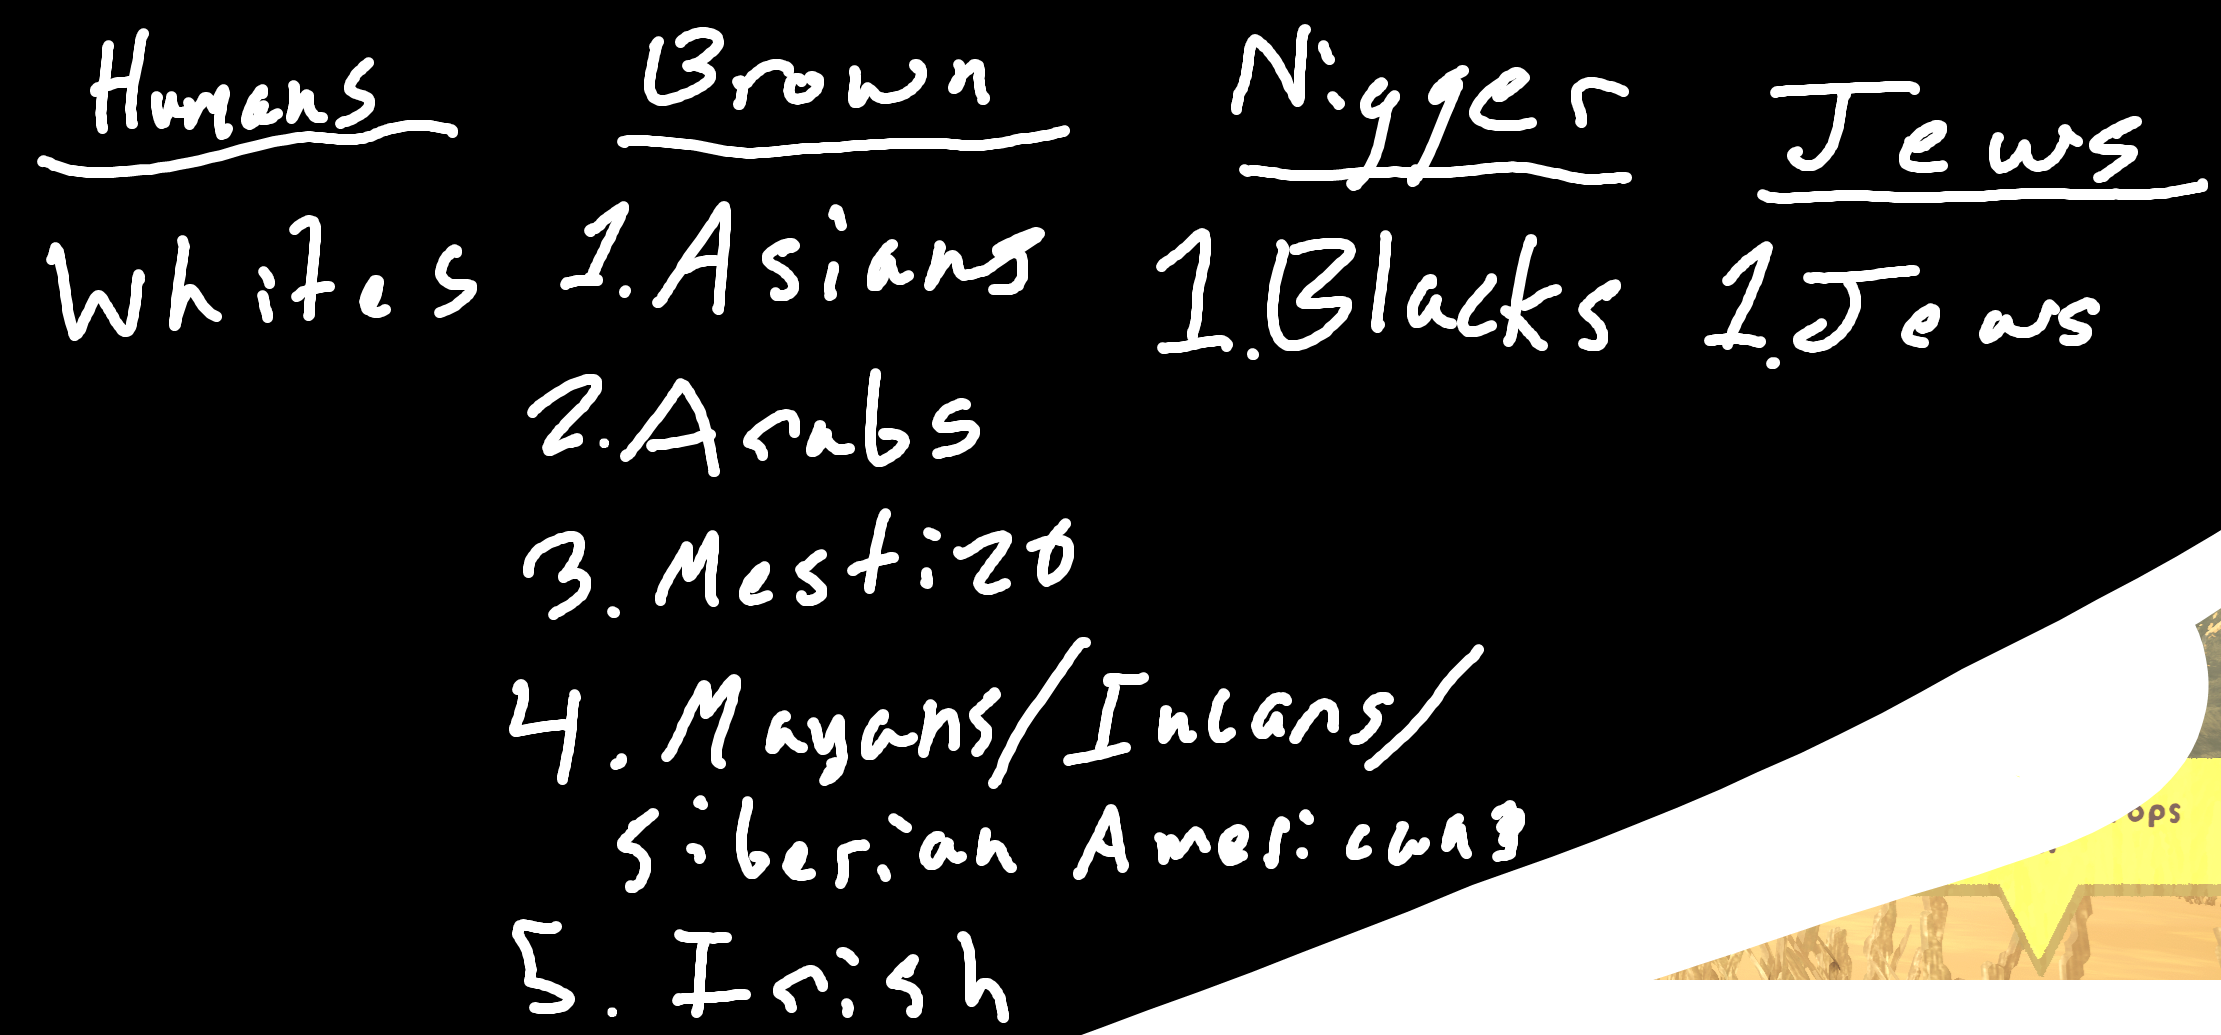 Humans Brown Nigger Jews
Whites 1. Asians 1. Blacks 1. Jews
2. Arabs
3. Mestizo
4. Mayans/Incans/
Siberian Americans
5. Irish